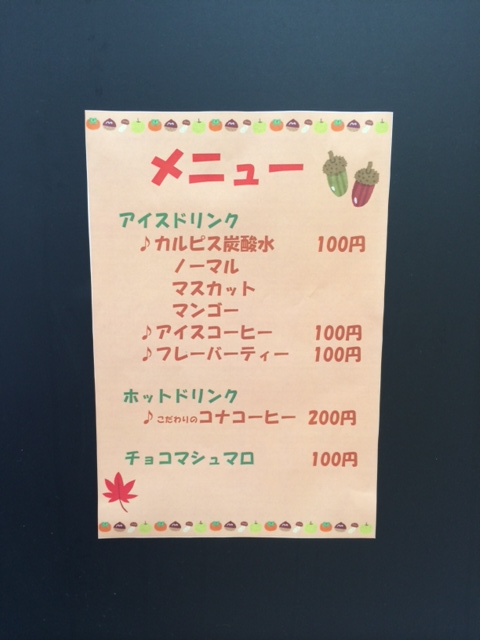 メニュー
アイスドリンク
♪カルピス炭酸水 100円
ノーマル
マスカット
マンゴー
♪アイスコーヒー 100円
♪フレーバーティー 100円
ホットドリンク
♪こだわりのコナコーヒー 200円
チョコマシュマロ 100円